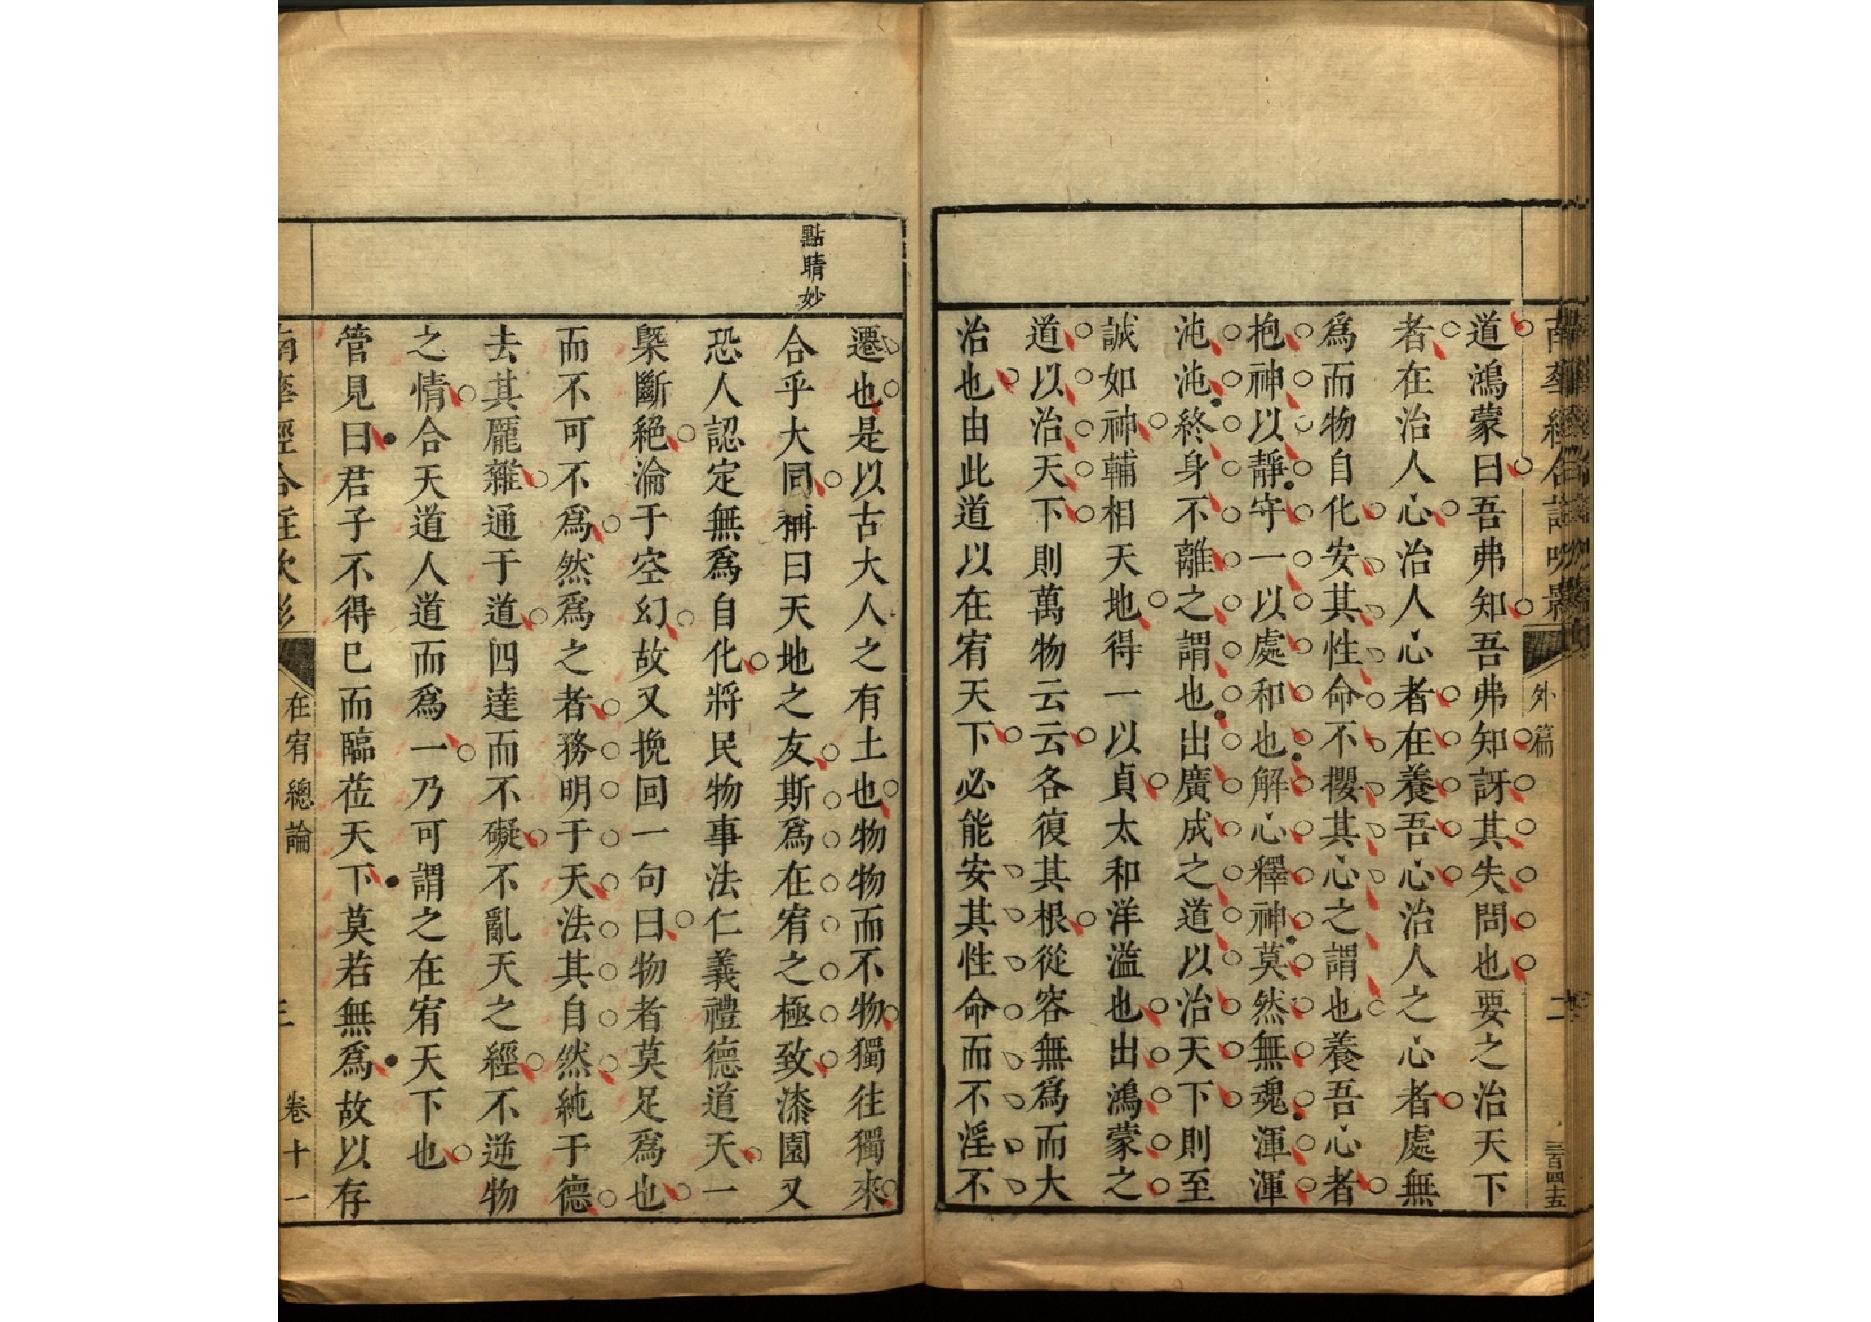 外篇
二
三百四十五
道鴻蒙曰吾弗知吾弗知訝其失問也要之治天下
者在治人心治人心者在養吾心治人之心者處無
爲而物自化安其性命不攖其心之謂也養吾心者
抱神以靜守一以處和也解心釋神莫然無魂渾渾
沌沌終身不離之謂也出廣成之道以治天下則至
誠如神輔相天地得一以貞太和洋溢也出鴻蒙之
道以治天下則萬物云云各復其根從容無爲而大
治也由此道以在宥天下必能安其性命而不淫不
點睛妙
遷也是以古大人之有土也物物而不物獨往獨來
合乎大同稱曰天地之友斯爲在宥之極致漆園又
恐人認定無爲自化將民物事法仁義禮德道天一
槩斷絕淪于空幻故又挽回一句曰物者莫足爲也
而不可不爲然爲之者務明于天法其自然純于德
去其厖雜通于道四達而不礙不亂天之經不逆物
之情合天道人道而爲一乃可謂之在宥天下也
管見曰君子不得已而臨莅天下莫若無爲故以存
在宥總論
卷十一